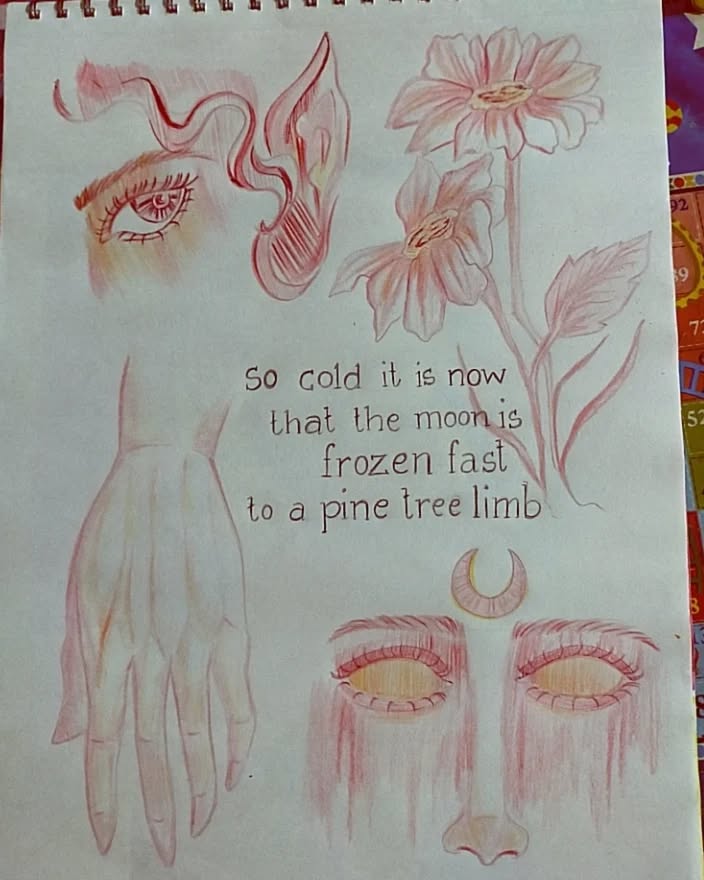 so cold it is now
that the moon is
frozen fast
to a pine tree limb
92